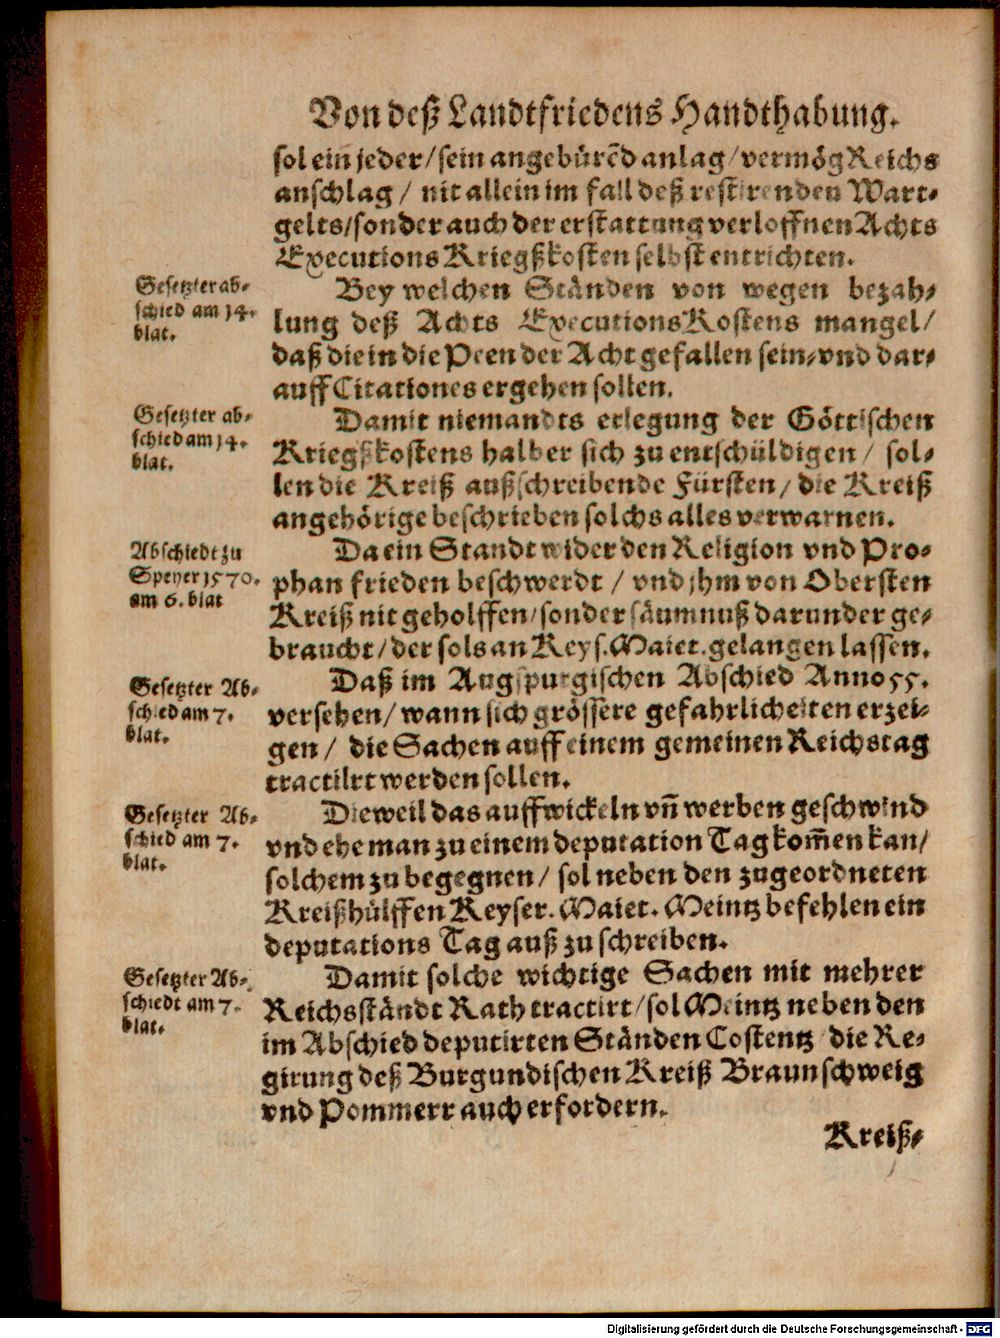 Von deß Landtfriedens Handthabung.
sol ein jeder/sein angebürēd anlag/vermög Reichs
anschlag / nit allein im fall deß restirenden Wart-
gelts/sonder auch der erstattung verloffnen Achts
Executions Kriegßkosten selbst entrichten.
Gesetzter ab-
schied am 14.
blat.
Bey welchen Ständen von wegen bezah-
lung deß Achts Executions Kostens mangel/
daß die in die Peen der Acht gefallen sein/vnd dar-
auff Citationes ergehen sollen.
Gesetzter ab-
schied am 14.
blat.
Damit niemandts erlegung der Göttischen
Kriegßkostens halber sich zu entschüldigen / sol-
len die Kreiß außschreibende Fürsten/ die Kreiß
angehörige beschrieben solchs alles verwarnen.
Abschiedt zu
Speyer 1570.
am 6. blat
Da ein Standt wider den Religion vnd Pro-
phan frieden beschwerdt / vnd jhm von Obersten
Kreiß nit geholffen/sonder säumnuß darunder ge-
braucht/der sols an Keys. Maiet. gelangen lassen.
Gesetzter Ab-
schied am 7.
blat.
Daß im Augspurgischen Abschied Anno 55.
versehen/wann sich grössere gefahrlicheiten erzei-
gen / die Sachen auff einem gemeinen Reichstag
tractilrt werden sollen.
Gesetzter Ab-
schied am 7.
blat.
Dieweil das auffwickeln vn̄ werben geschwind
vnd ehe man zu einem deputation Tag kom̄en kan/
solchem zu begegnen/ sol neben den zugeordneten
Kreißhülffen Keyser. Maiet. Meintz befehlen ein
deputations Tag auß zu schreiben.
Gesetzter Ab-
schiedt am 7.
blat.
Damit solche wichtige Sachen mit mehrer
Reichsständt Rath tractirt/sol Meintz neben den
im Abschied deputirten Ständen Costentz die Re-
girung deß Burgundischen Kreiß Braunschweig
vnd Pommerr auch erfordern.
Kreiß-
Digitalisierung gefördert durch die Deutsche Forschungsgemeinschaft - DFG